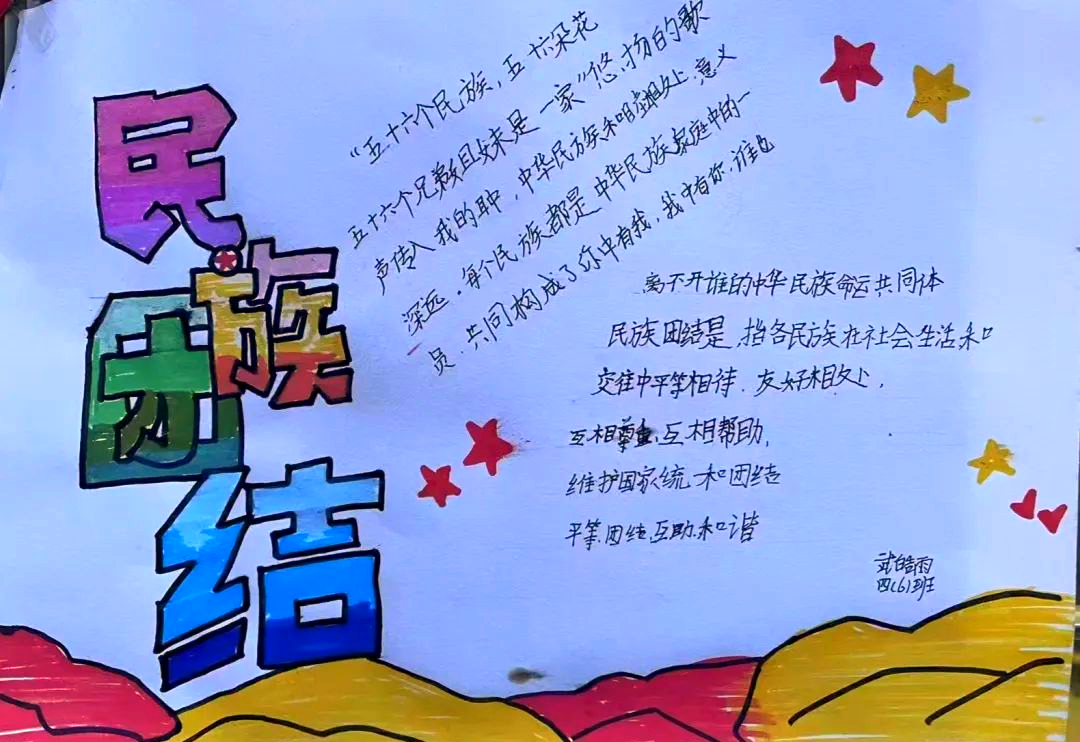 民族团结
"五十六个民族,五十六朵花
五十六个兄弟姐妹是一家"悠扬的歌
声传入我的耳中,中华民族和睦相处,意义
深远。每个民族都是中华民族家庭中的一
员,共同构成了你中有我,我中有你,谁也
离不开谁的中华民族命运共同体
民族团结是,指各民族在社会生活和
交往中平等相待、友好相处,
互相尊重、互相帮助,
维护国家统一和团结
平等、团结、互助、和谐
武皓雨
四(6)班